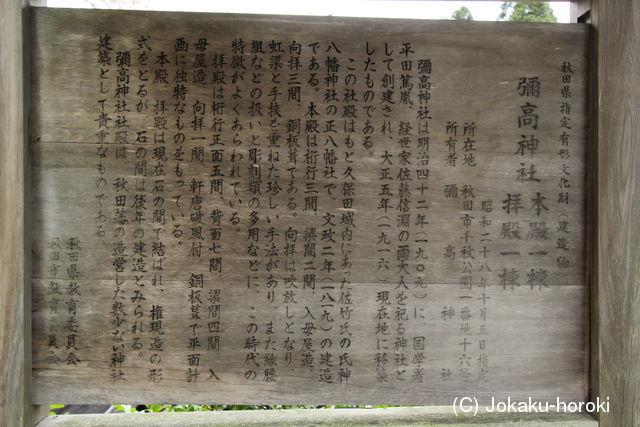 秋田県指定有形文化財(建造物)
彌高神社 本殿一棟
拝殿一棟
昭和二十八年十月五日指定
所在地 秋田市千秋公園一番地十六号
所有者 彌高神社
彌高神社は明治四十二年(一九〇九)に、国学者
平田篤胤、経世家佐藤信淵の両大人を祀る神社と
して創建され、大正五年(一九一六)現在地に移築
したものである。
この社殿はもと久保田城内にあった佐竹氏の氏神
八幡神社の正八幡社で、文政二年(一八一九)の建造
である。本殿は桁行三間、梁間二間、入母屋造、
向拝三間、銅板葺である。向拝は吹放しとなり、
虹梁と手挟を重ねた珍しい手法があり、また繋腰
組などの扱いと彫刻類の多用などに、この時代の
特徴がよくあらわれている。
拝殿は桁行正面五間、背面七間、梁間四間、入
母屋造、向拝一間、軒唐破風付、銅板葺で平面計
画に独特なものをもっている。
本殿、拝殿は現在石の間で結ばれ、権現造の形
式をとるが、石の間は後年の建造とみられる。
彌高神社社殿は、秋田藩の造営した数少ない神社
建築として貴重なものである。
秋田県教育委員会
秋田市教育委員会
(C) Jokaku-horoki